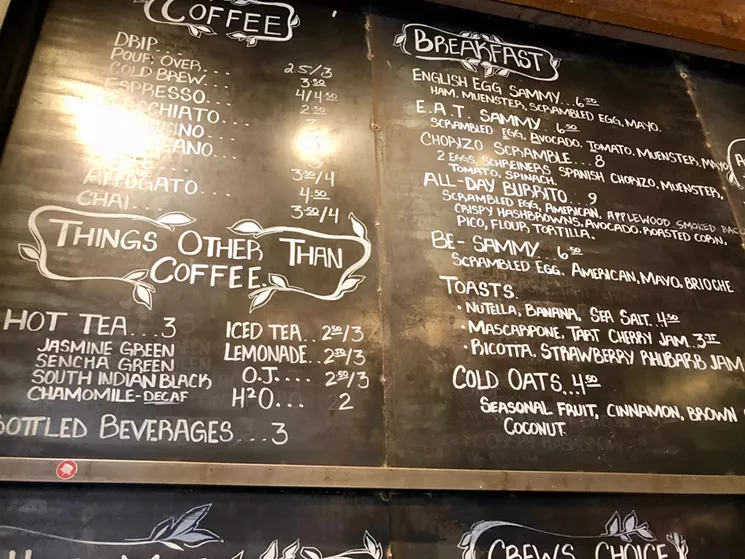 COFFEE
DRIP....
POUR OVER.... 2.5/3
COLD BREW.... 3.50
ESPRESSO.... 4/4.50
2.50
AFFOGATO 3.50/4
CHAI.... 4.50
3.50/4
THINGS OTHER THAN
COFFEE
HOT TEA...3
JASMINE GREEN
SENCHA GREEN
SOUTH INDIAN BLACK
CHAMOMILE-DECAF
ICED TEA..2.50/3
LEMONADE..2.50/3
O.J....2.50/3
H2O... 2
BOTTLED BEVERAGES...3
BREAKFAST
ENGLISH EGG SAMMY...6.50
HAM, MUENSTER, SCRAMBLED EGG, MAYO.
E.A.T. SAMMY...6.50
SCRAMBLED EGG, AVOCADO, TOMATO, MUENSTER, MAYO
CHORIZO SCRAMBLE...8
2 EGGS, SCHREINERS SPANISH CHORIZO, MUENSTER,
TOMATO, SPINACH.
ALL-DAY BURRITO...9
SCRAMBLED EGG, AMERICAN, APPLEWOOD SMOKED
CRISPY HASHBROWNS, AVOCADO, ROASTED CORN,
PICO, FLOUR, TORTILLA.
BE-SAMMY...6.50
SCRAMBLED EGG, AMERICAN, MAYO, BRIOCHE
TOASTS
• NUTELLA, BANANA, SEA SALT..4.50
• MASCARPONE, TART CHERRY JAM.3.75
• RICOTTA, STRAWBERRY RHUBARB JAM
COLD OATS...4.50
SEASONAL FRUIT, CINNAMON, BROWN
COCONUT
CREW'S CHOICE